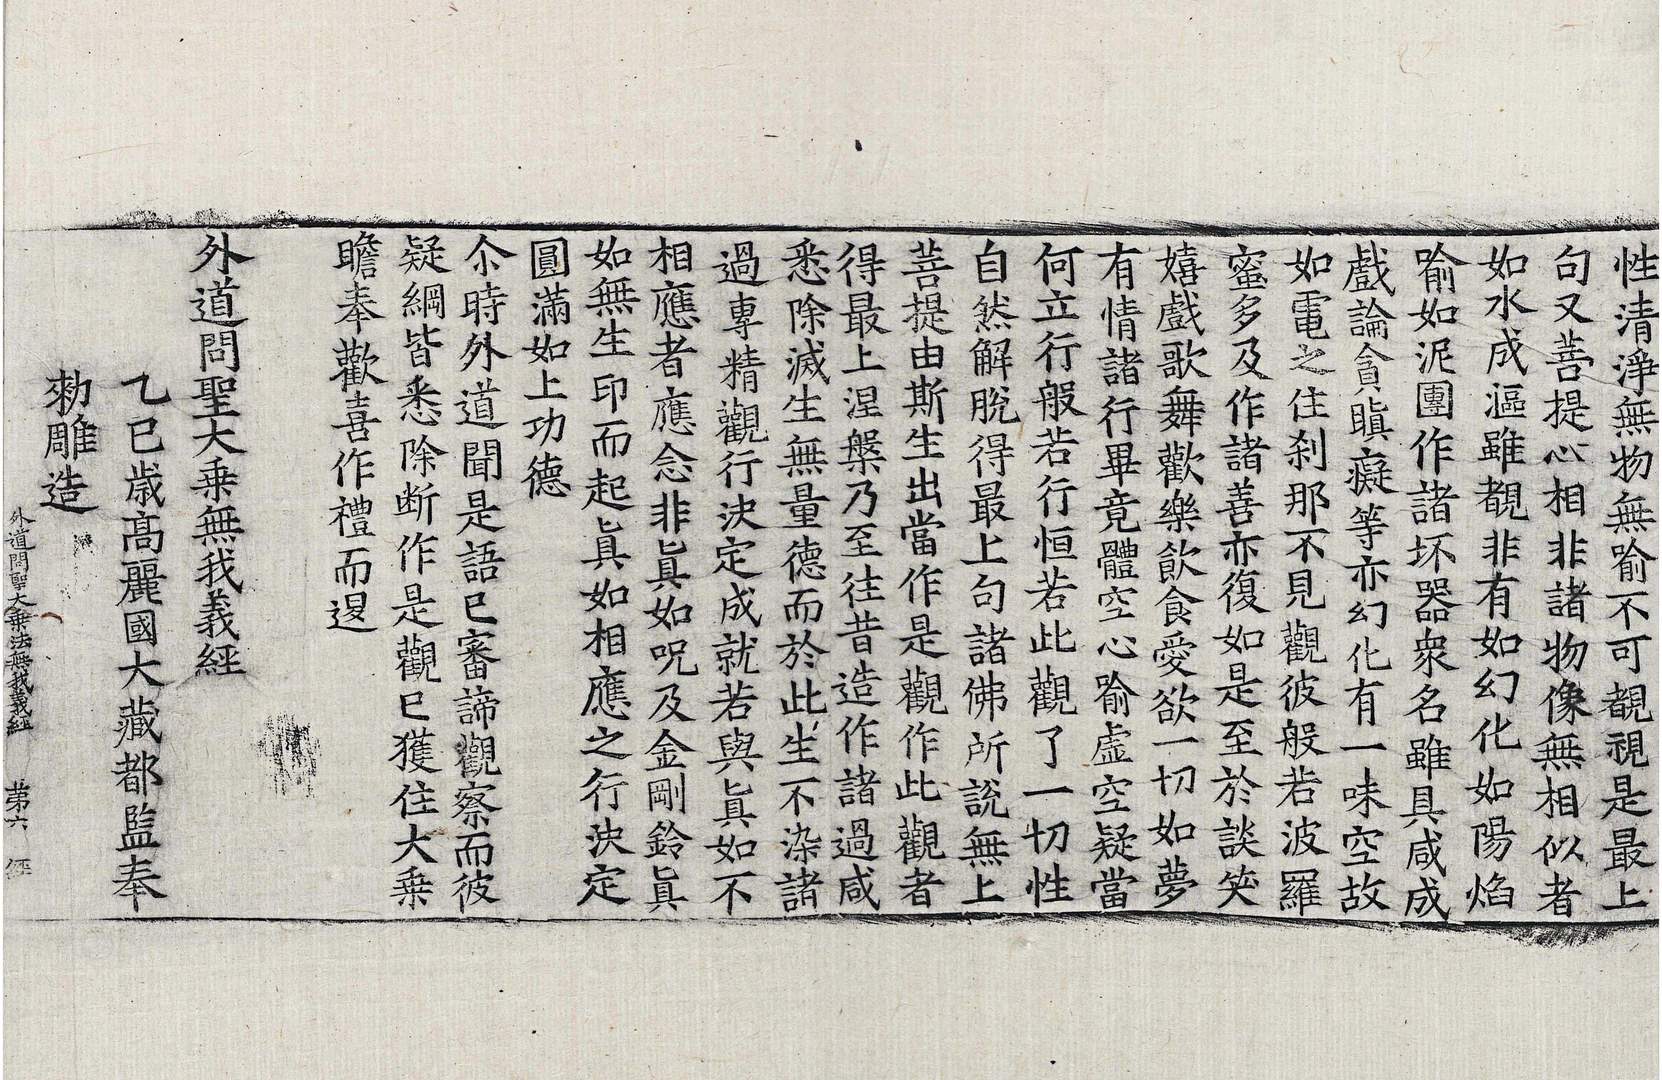 性清淨無物無喻不可覩視是最上
句又菩提心相非諸物像無相似者
如水成漚雖覩非有如幻化如陽焰
喻如泥團作諸坏器衆名雖具咸成
戲論貪瞋癡等亦幻化有一味空故
如電之住刹那不見觀彼般若波羅
蜜多及作諸善亦復如是至於談笑
嬉戲歌舞歡樂飲食愛欲一切如夢
有情諸行畢竟體空心喻虛空疑當
何立行般若行恒若此觀了一切性
自然解脫得最上句諸佛所說無上
菩提由斯生出當作是觀作此觀者
得最上涅槃乃至往昔造作諸過咸
悉除滅生無量德而於此生不染諸
過專精觀行決定成就若與眞如不
相應者應念非眞如呪及金剛鈴眞
如無生印而起眞如相應之行決定
圓滿如上功德
尒時外道聞是語已審諦觀察而彼
疑網皆悉除断作是觀已獲住大乗
瞻奉歡喜作禮而退
外道問聖大乗無我義經
乙巳歳高麗國大藏都監奉
勅雕造
外道問聖大乗法無我義經 第六 經